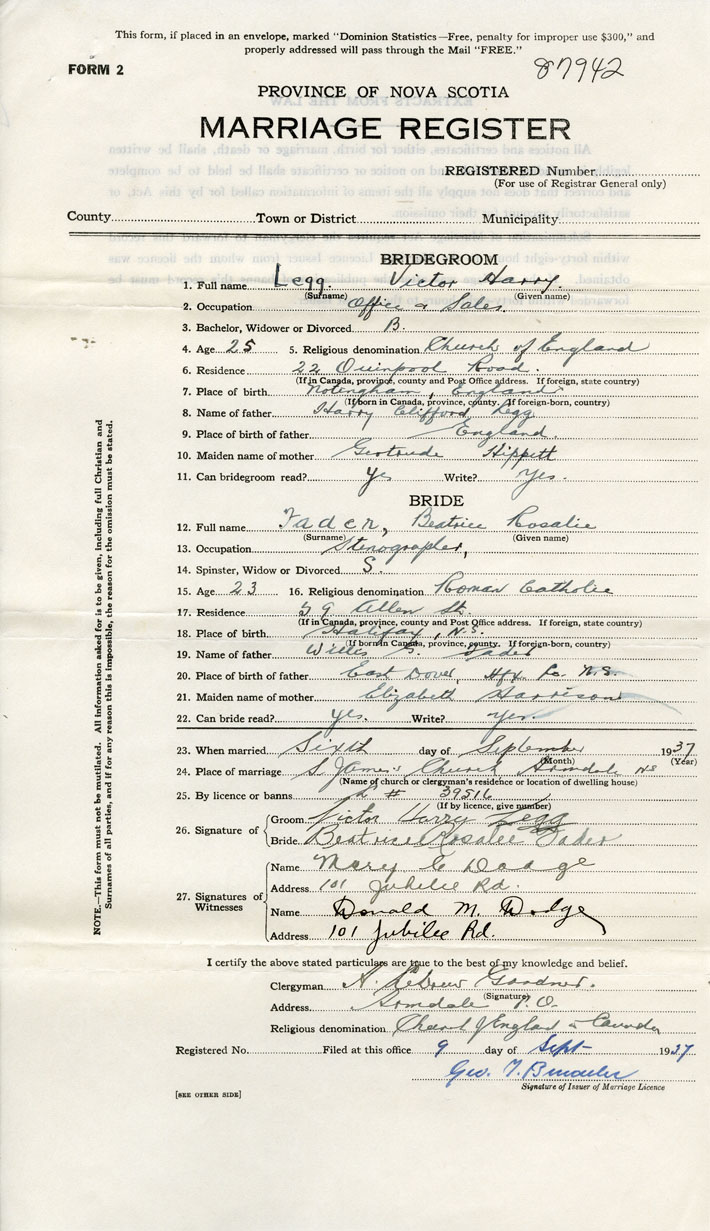 This form, if placed in an envelope, marked "Dominion Statistics—Free, penalty for improper use $300," and
properly addressed will pass through the Mail "FREE."
FORM 2
87942
PROVINCE OF NOVA SCOTIA
MARRIAGE REGISTER
REGISTERED Number
(For use of Registrar General only)
County Town or District Municipality
BRIDEGROOM
1. Full name Legg. Victor Harry.
(Surname) (Given name)
2. Occupation Office & Sales
3. Bachelor, Widower or Divorced B.
4. Age 25 5. Religious denomination Church of England
6. Residence 22 Quinpool Road.
(If in Canada, province, county and Post Office address. If foreign, state country)
7. Place of birth Notingham, England
(If born in Canada, province, county. If foreign-born, country)
8. Name of father Harry Clifford Legg
9. Place of birth of father England.
10. Maiden name of mother Gertrude Hippett
11. Can bridegroom read? Yes Write? Yes.
BRIDE
12. Full name Fader, Beatrice Rosalie
(Surname) (Given name)
13. Occupation Stenographer,
14. Spinster, Widow or Divorced S.
15. Age 23 16. Religious denomination Roman Catholic
17. Residence 59 Allen St.
(If in Canada, province, county and Post Office address. If foreign, state country)
18. Place of birth Halifax, N.S.
(If born in Canada, province, county. If foreign-born, country)
19. Name of father Willis S. Fader
20. Place of birth of father East Dover, Hfx Co. N.S.
21. Maiden name of mother Elizabeth Harrison
22. Can bride read? Yes. Write? Yes.
23. When married Sixth day of September 1937
(Month) (Year)
24. Place of marriage S. James' Church Armdale NS
(Name of church or clergyman's residence or location of dwelling house)
25. By licence or banns # 39516
(If by licence, give number)
26. Signature of
Groom Victor Harry Legg
Bride Beatrice Rosalie Fader
27. Signatures of Witnesses
Name Mary C Dodge
Address 101 Jubilee Rd.
Name Donald M. Dodge
Address 101 Jubilee Rd.
I certify the above stated particulars are true to the best of my knowledge and belief.
Clergyman A. Gardner.
(Signature)
Address Armdale P.O.
Religious denomination Church of England in Canada
Registered No. Filed at this office 9 day of Sept 1937
Geo. T.
Signature of Issuer of Marriage Licence
[SEE OTHER SIDE]
NOTE.—This form must not be mutilated. All information asked for is to be given, including full Christian and
Surnames of all parties, and if for any reason this is impossible, the reason for the omission must be stated.